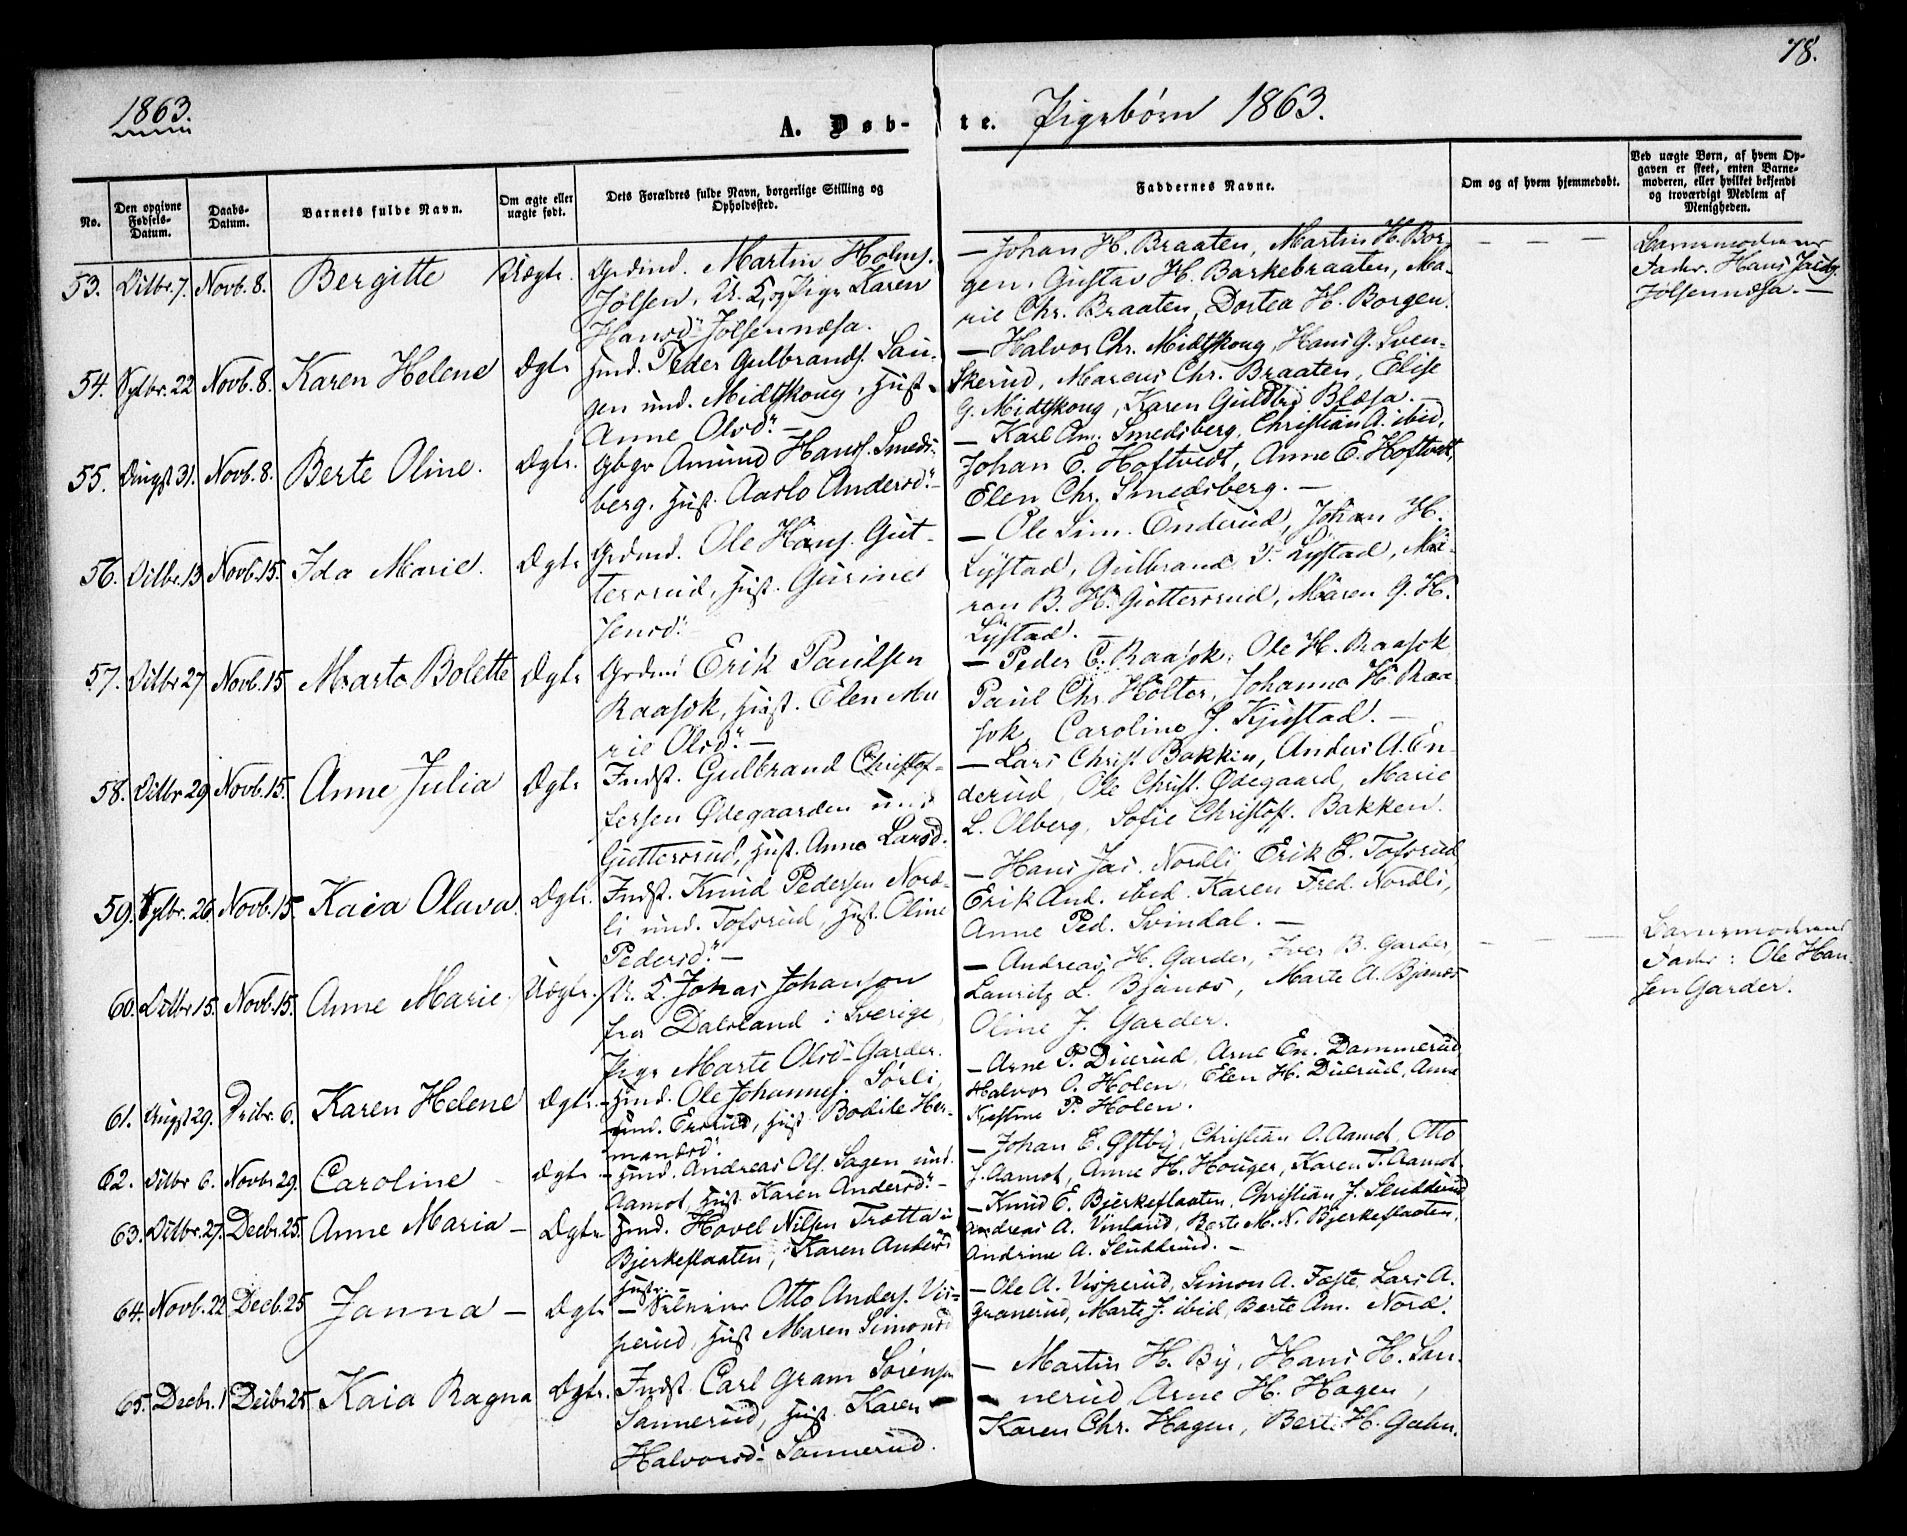 78.
1863.
A. Døb-
te. Pigebørn 1863.
No.
Den opgivne Fødsels-Datum.
Daabs-Datum.
Barnets fulde Navn.
Om ægte eller uægte født.
Dets Forældres fulde Navn, borgerlige Stilling og Opholdssted.
Faddernes Navne.
Om og af hvem hjemmedøbt.
Ved uægte Børn, af hvem Opgaven er skeet, enten Barnemoderen, eller hvilket bekjendt og troværdigt Medlem af Menigheden.
53. Octbr. 7. Novb. 8. Bergitte Uægte. Grdmd. Martin Holms.
Jølsen, U. S. og Pige Karen
Hansd. Jølsennæsa.
— Johan H. Braaten, Martin H. Bor-
gen, Gustav H. Barkebraaten, Ma-
rie Chr. Braaten, Dortea H. Borgen.
— — —
Barnemoderens
Fader. Hans Jacobs.
Jølsennæsa. —
54. Septbr. 22 Novb. 8. Karen Helene Ægte Hmd. Peder Gulbrands. Lau-
gen und. Midtskoug, Hust.
Anne Olsd. —
— Halvor Chr. Midtskoug, Hans G. Sven-
skerud, Marcus Chr. Braaten, Elise
G. Midtskoug, Karen Guldbr. Blæsa. —
55. August 31. Novb. 8. Berte Oline. Ægte. Gbgr Amund Hans. Smeds-
berg, Hust. Aaslo Andersd. —
— Karl Am. Smedsberg, Christian A. ibid,
Johan E. Hoftvedt, Anne E. Hoftvedt,
Elen Chr. Smedsberg. —
56. Octbr. 13 Novb. 15. Ida Marie. Ægte Grdmd. Ole Hans. Gut-
tersrud, Hust. Gurine
Jensd.
— Ole Sim. Enderud, Johan H.
Lystad, Gulbrand T. Lystad, Ma-
ren B. H. Guttersrud, Maren G. H.
Lystad.
57. Octbr 27 Novb. 15 Marte Bolette Ægte Grdmd Erik Paulsen
Raasok, Hust. Elen Ma
rie Olsd. —
— Peder E. Raasok, Ole H. Raasok
Paul Chr. Holter, Johanne H. Raa
sok, Caroline J. Kjustad. —
58. Octbr 29 Novb. 15. Anne Julia Ægte Indst. Gulbrand Christof-
fersen Ødegaarden und
Guttersrud, Hust. Anne Larsd.
— Lars Christ. Bakken, Anders A. En-
derud, Ole Christ. Ødegaard, Marie
L. Olberg, Sofie Christof. Bakken.
59. Septbr. 26. Novb. 15. Kaia Olava. Ægte. Indst. Knud Pedersen Nord-
li und. Tofsrud, Hust. Oline
Pedersd. —
— Hans Jac. Nordli, Erik E. Tofsrud
Erik And. ibid. Karen Fred. Nordli,
Anne Ped. Svindal. —
60. Octbr 15. Novb. 15. Anne Marie. Uægte. U. S. Johas Johanson
fra Dalsland i Sverige,
Pige Marte Olsd. Garder.
— Andreas H. Garder, Iver B. Garder,
Lauritz L. Bjanæs, Marte A. Bjanæs
Oline J. Garder.
— — —
Barnemoderens
Fader: Ole Han-
sen Garder.
61. August 29. Decbr. 6. Karen Helene Ægte. Hmd. Ole Johannes. Sørli,
und. Ersrud, Hust. Bodile Her-
mansd.
— Arne P. Duerud, Arne En. Dammerud
Halvor O. Holen, Elen H. Duerud, Anne
Kristine P. Holen.
62. Octbr 6. Novbr 29. Caroline Ægte Hmd. Andreas Ols. Sagen und.
Aamot, Hust. Karen Andersd. —
— Johan E. Østby, Christian O. Aamot, Otto
J. Aamot, Anne H. Houger, Karen T. Aamot.
63. Octbr. 27. Decbr. 25. Anne Maria — Ægte Hmd. Hovel Nilsen Trætta
Bjerkeflaaten, Karen Andersd
Hust. —
— Knud E. Bjerkeflaaten, Christian J. Sludderud
Andreas A. Vinland, Berte M. N. Bjerkeflaaten,
Andrine A. Sludderud. —
64. Novb. 22 Decb. 25 Janna — Ægte — Otto Anders. Vis-
perud, Hust Maren Simonsd
— Ole A. Visperud, Simon A. Fæste, Lars A.
Granerud, Marte J. ibid, Berte Am. Nord.
65. Decbr. 1 Decbr 25 Kaia Ragna Ægte. Indst. Carl Gram Sørensen
Sannerud, Hust. Karen —
Halvorsd. Sannerud.
— Martin H. By, Hans H. San-
— nerud, Arne H. Hagen,
Karen Chr. Hagen, Berte H. Gahn.